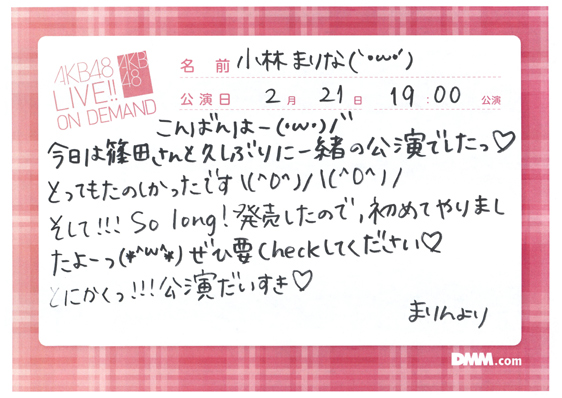 AKB48
LIVE!!
ON DEMAND
AKB
48
名前 小林まりな(`・ω・´)
公演日 2月 21日 19:00 公演
こんばんはー(・ω・)ノ゛
今日は篠田さんと久しぶりに一緒の公演でしたっ♡
とってもたのしかったです\(^O^)/\(^O^)/
そして!!! So long!発売したので、初めてやりまし
たよーっ(*^ω^*)ぜひ要Checkしてください♡
とにかくっ!!!公演だいすき♡
まりんより
DMM.com